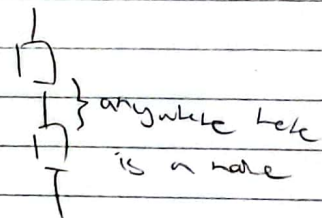 anywhere here
is a node